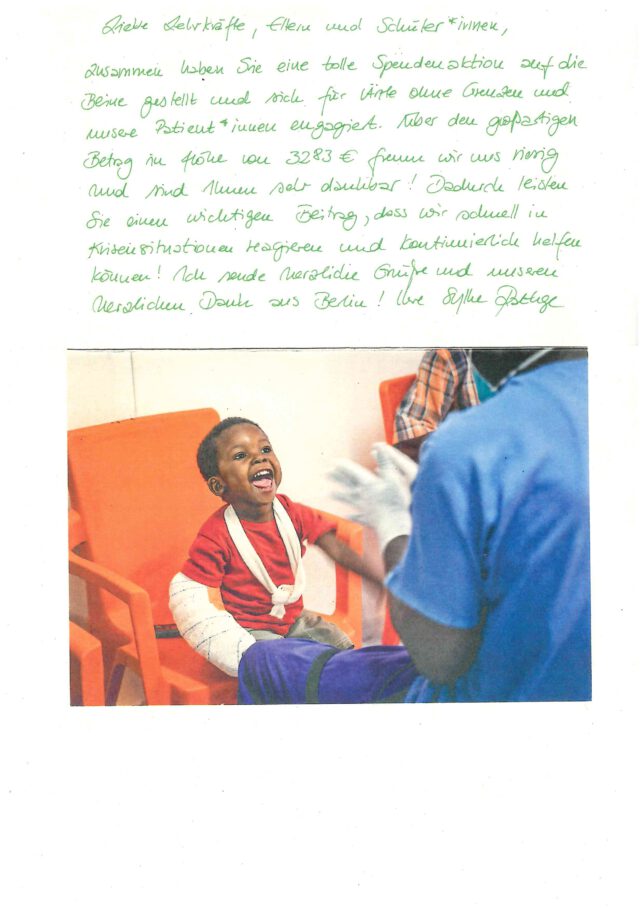 Liebe Lehrkräfte, Eltern und Schüler*innen,
zusammen haben Sie eine tolle Spendenaktion auf die
Beine gestellt und sich für Ärzte ohne Grenzen und
unsere Patient*innen engagiert. Über den großartigen
Betrag in Höhe von 3283 € freuen wir uns riesig
und sind Ihnen sehr dankbar! Dadurch leisten
Sie einen wichtigen Beitrag, dass wir schnell in
Krisensituationen reagieren und kontinuierlich helfen
können! Ich sende herzliche Grüße und unseren
herzlichen Dank aus Berlin! Ihre